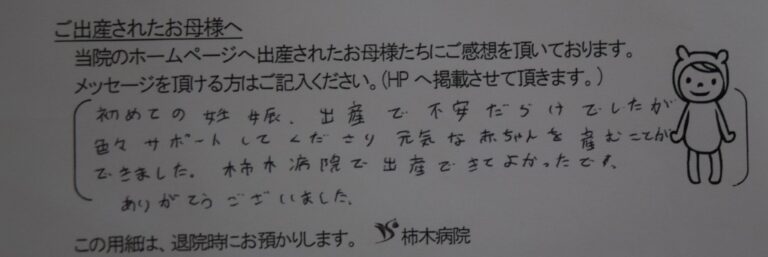 ご出産されたお母様へ
当院のホームページへ出産されたお母様たちにご感想を頂いております。
メッセージを頂ける方はご記入ください。(HPへ掲載させて頂きます。)
初めての妊娠、出産で不安だらけでしたが
色々サポートしてくださり元気な赤ちゃんを産むことが
できました。柿木病院で出産できてよかったです。
ありがとうございました。
この用紙は、退院時にお預かりします。 柿木病院